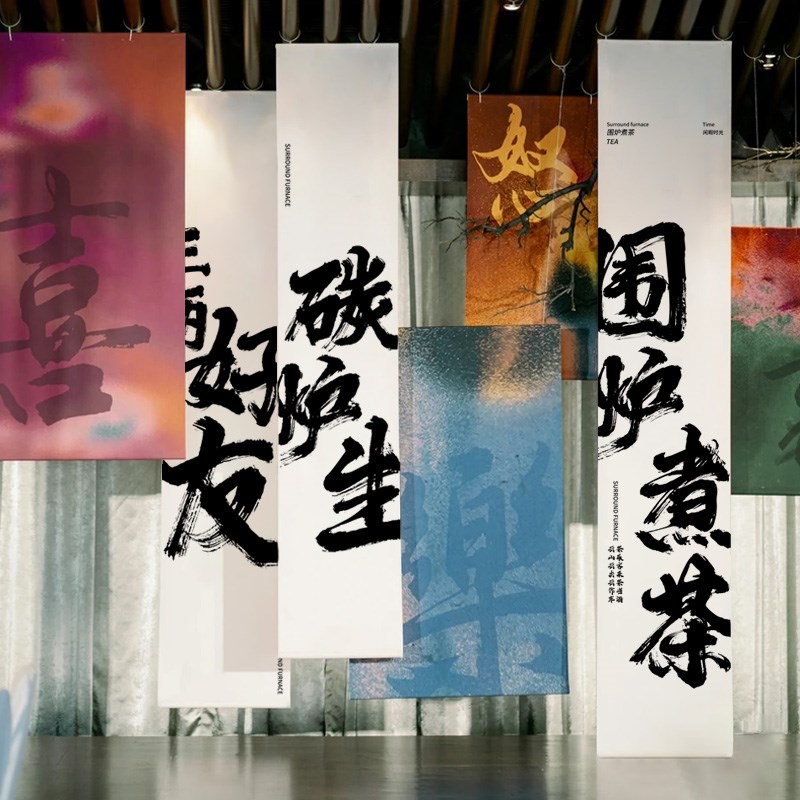 喜
三两
好友
ND FURNACE
SURROUND FURNACE
碳炉生
怒
樂
Surround furnace
围炉煮茶
TEA
Time
闲暇时光
围炉煮茶
SURROUND FURNACE